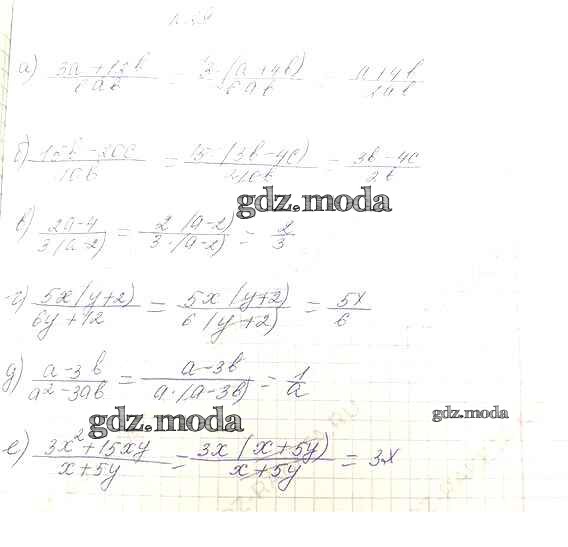 а) (3a + 12b)/(6ab) = (3·(a+4b))/(6ab) = (a+4b)/(2ab)
б) (15b - 20c)/(10b) = (5·(3b-4c))/(10b) = (3b-4c)/(2b)
gdz.moda
в) (2a-4)/(3(a-2)) = (2·(a-2))/(3·(a-2)) = 2/3
г) (5x(y+2))/(6y+12) = (5x(y+2))/(6(y+2)) = 5x/6
д) (a-3b)/(a²-3ab) = (a-3b)/(a·(a-3b)) = 1/a
gdz.moda
gdz.moda
е) (3x²+15xy)/(x+5y) = (3x(x+5y))/(x+5y) = 3x